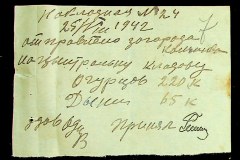 Накладная № 24
25/VIII 1942
отправлено с огорода
на центральную кладовую
Огурцов 220 к
Дыни 65 к
Принял